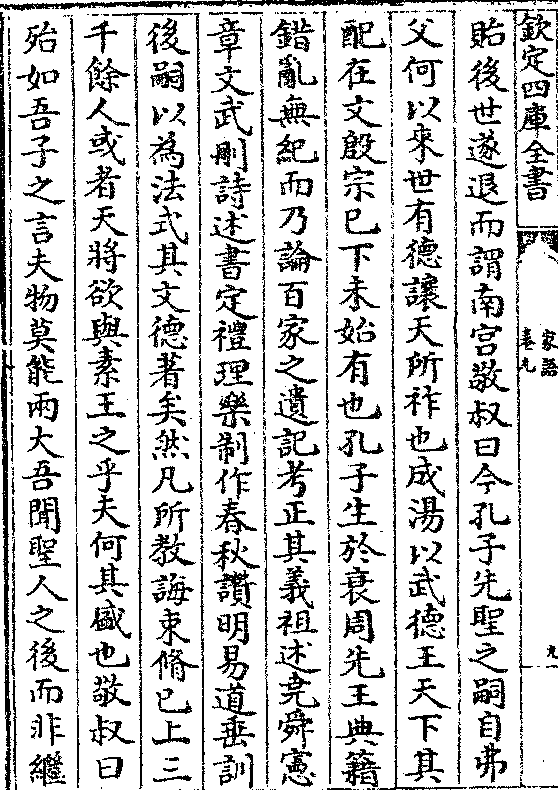 欽定四庫全書
家語
卷九
九
貽後世遂退而謂南宫敬叔曰今孔子先聖之嗣自弗
父何以來世有德讓天所祚也成湯以武德王天下其
配在文殷宗已下未始有也孔子生於衰周先王典籍
錯亂無紀而乃論百家之遺記考正其義祖述堯舜憲
章文武刪詩述書定禮理樂制作春秋讚明易道垂訓
後嗣以為法式其文德著矣然凡所教誨束脩已上三
千餘人或者天將欲與素王之乎夫何其盛也敬叔曰
殆如吾子之言夫物莫能兩大吾聞聖人之後而非繼